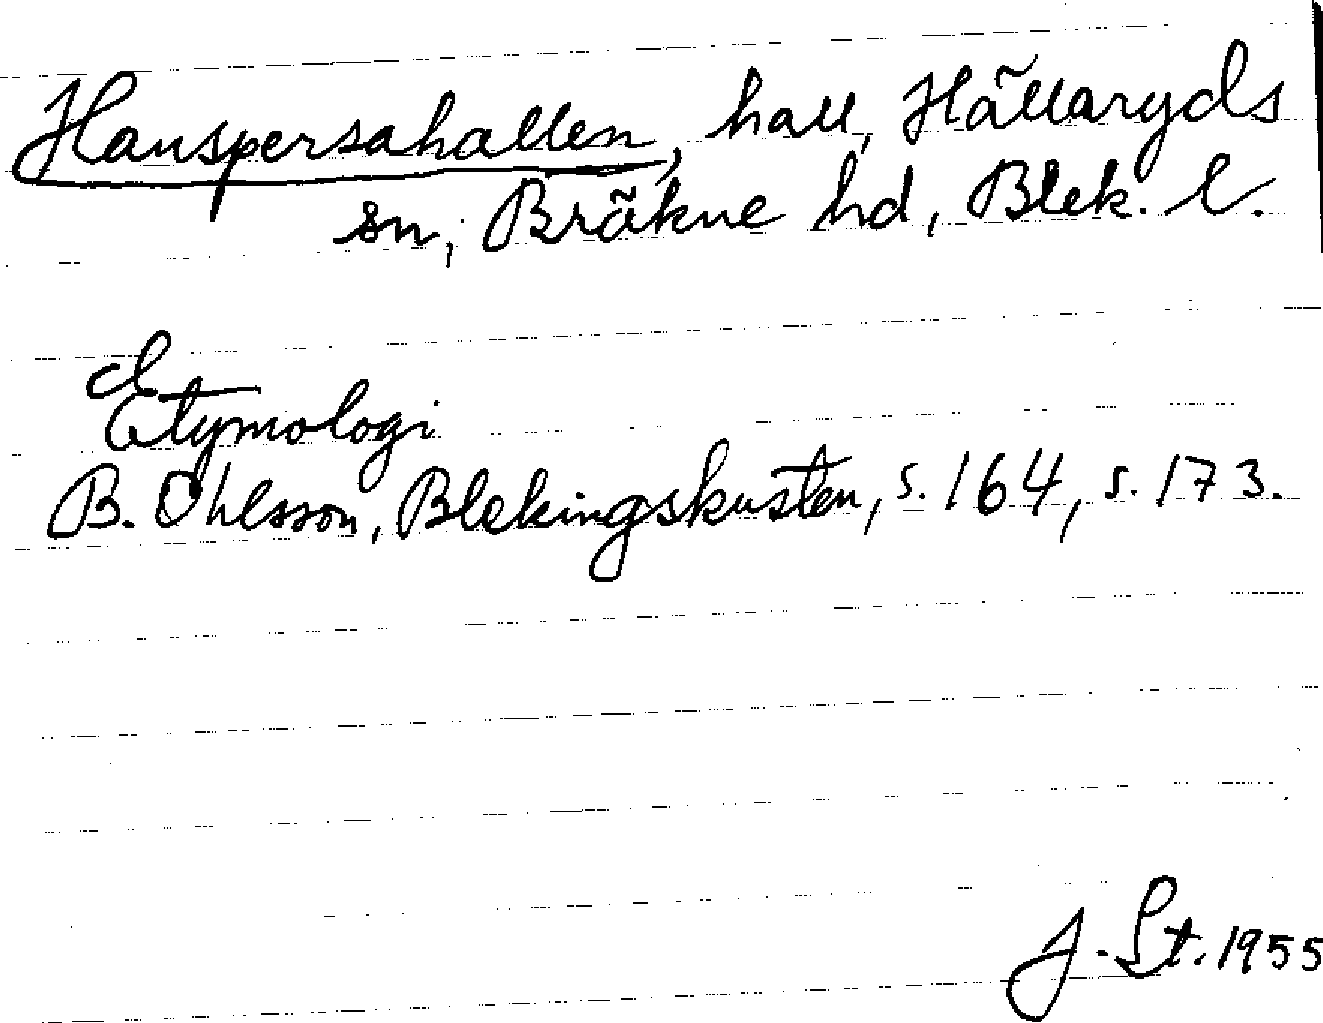 Hanspersahallen, hall, Hällaryds
sn, Bräkne hd, Blek. l.
Etymologi
B. Ohlsson, Blekingskusten, s. 164, s. 173.
J. St. 1955